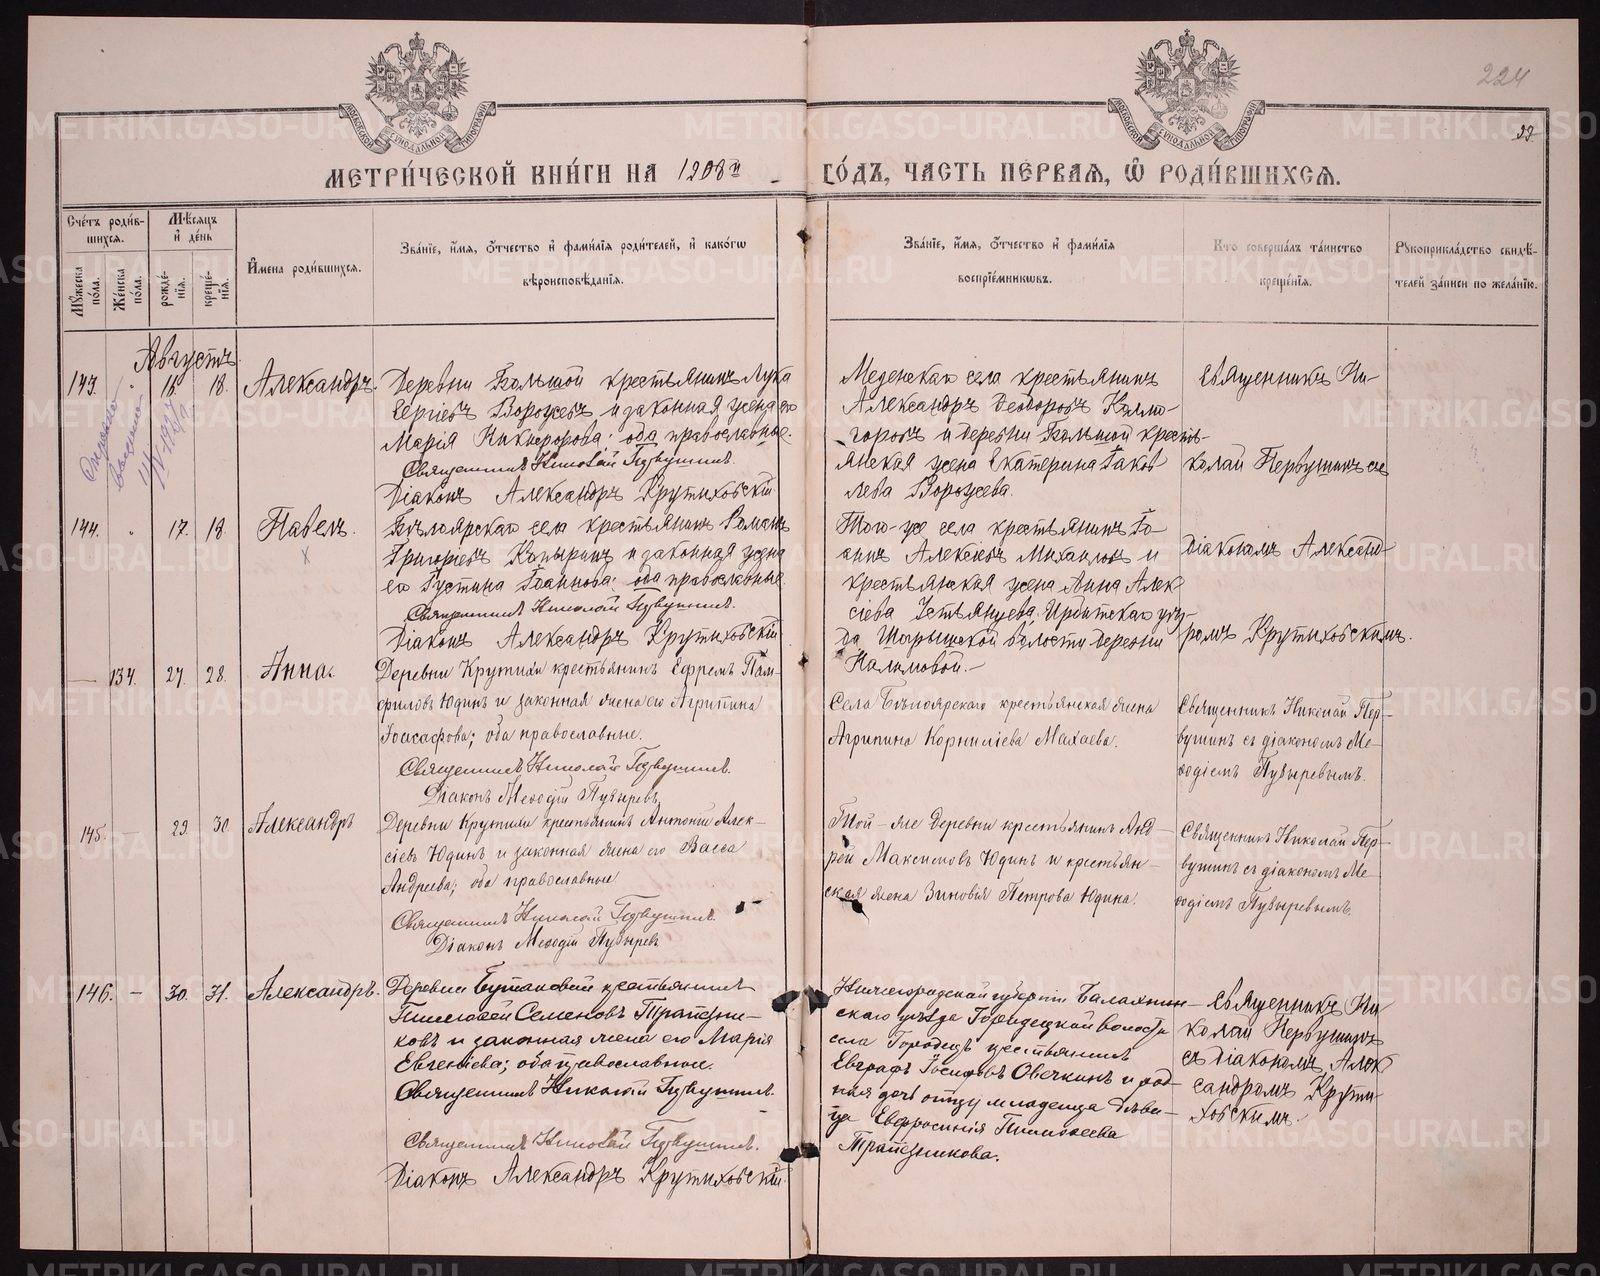 224
23
МОСКОВСКОЙ СУНОДАЛЬНОЙ ТИПОГРАФІИ
МОСКОВСКОЙ СУНОДАЛЬНОЙ ТИПОГРАФІИ
МЕТРИ́ЧЕСКОЙ КНИ́ГИ НА 1908й ГО́ДЪ, ЧАСТЬ ПЕ́РВАЯ, Ѡ РОДИ́ВШИХСЯ.
Сче́тъ роди́в-
шихся.
Мѣ́сяцъ
и҆ де́нь
Мꙋ́жеска
по́ла.
Же́нска
по́ла.
рожде́-
нїѧ.
креще́-
нїѧ.
И҆мена роди́вшихся.
Зва́нїе, и҆́мя, ѻ҆́тчество и҆ фами́лїя роди́телей, и҆ како́гѡ
вѣроисповѣ́данїя.
Зва́нїе, и҆́мя, ѻ҆́тчество и҆ фами́лїя
воспрїе́мниковъ.
Кто соверша́лъ та́инство
креще́нїя.
Рꙋкоприкла́дство свидѣ́-
телей за́писи по жела́нїю.
Августъ
143. " 16. 18. Александръ.
Деревни Большой крестьянинъ Лука
Сергіевъ Ворожевъ и законная жена его
Марія Никифорова: оба православные.
Священникъ Николай Первушинъ.
Діаконъ Александръ Крутиховскій
Меденскаго села крестьянинъ
Александръ Ѳеодоровъ
и деревни Большой кресть-
янская жена Екатерина Іаков
лева Ворожева.
Священникъ Ни-
колай Первушинъ съ
144. " 17. 18. Павелъ.
х
Бѣлоярскаго села крестьянинъ Романъ
Григорьевъ Копыринъ и законная жена
его Іустина Іоаннова: оба православные.
Священникъ Николай Первушинъ.
Діаконъ Александръ Крутиховскій
Того-же села крестьянинъ Іо
аннъ Алексіевъ Михайловъ и
крестьянская жена Анна Алек
сіева Устьянцева, Ирбитскаго уѣз-
да, волости деревни
Налимовой.
діакономъ Александ-
ромъ Крутиховскимъ.
— 134. 27. 28. Анна.
Деревни Крутихи крестьянинъ Ефремъ Пам-
филовъ Юдинъ и законная жена его Агрипина
Іоасафова; оба православные.
Священникъ Николай Первушинъ.
Діаконъ Меѳодій Пузыревъ
Села Бѣлоярскаго крестьянская жена
Агрипина Корниліева Махаева.
Священникъ Николай Пер-
вушинъ съ діакономъ Ме-
ѳодіемъ Пузыревымъ.
145. — 29. 30. Александръ
Деревни Крутихи крестьянинъ Антоній Алек-
сіевъ Юдинъ и законная жена его Васса
Андреева; оба православные
Священникъ Николай Первушинъ.
Діаконъ Меѳодій Пузыревъ
Той-же деревни крестьянинъ Анд-
рей Максимовъ Юдинъ и крестьян-
ская жена Зиновія Петрова Юдина.
Священникъ Николай Пер-
вушинъ съ діакономъ Ме-
ѳодіемъ Пузыревымъ.
146. — 30. 31. Александръ.
Деревни Бутаковой крестьянинъ
Тимоѳей Семеновъ Трапезни-
ковъ и законная жена его Марія
Евгеніева; оба православные.
Священникъ Николай Первушинъ.
Священникъ Николай Первушинъ.
Діаконъ Александръ Крутиховскій
Нижегородской губерніи Балахнин-
скаго уѣзда Городецкой волости
села Городецъ крестьянинъ
Евграфъ Іосифовъ Овечкинъ и род-
ная дочь отцу младенца дѣви-
ца Евфросинія Тимоѳеева
Трапезникова.
Священникъ Ни-
колай Первушинъ
съ діакономъ Алек
сандромъ Крути-
ховскимъ.
METRIKI.GASO-URAL.RU